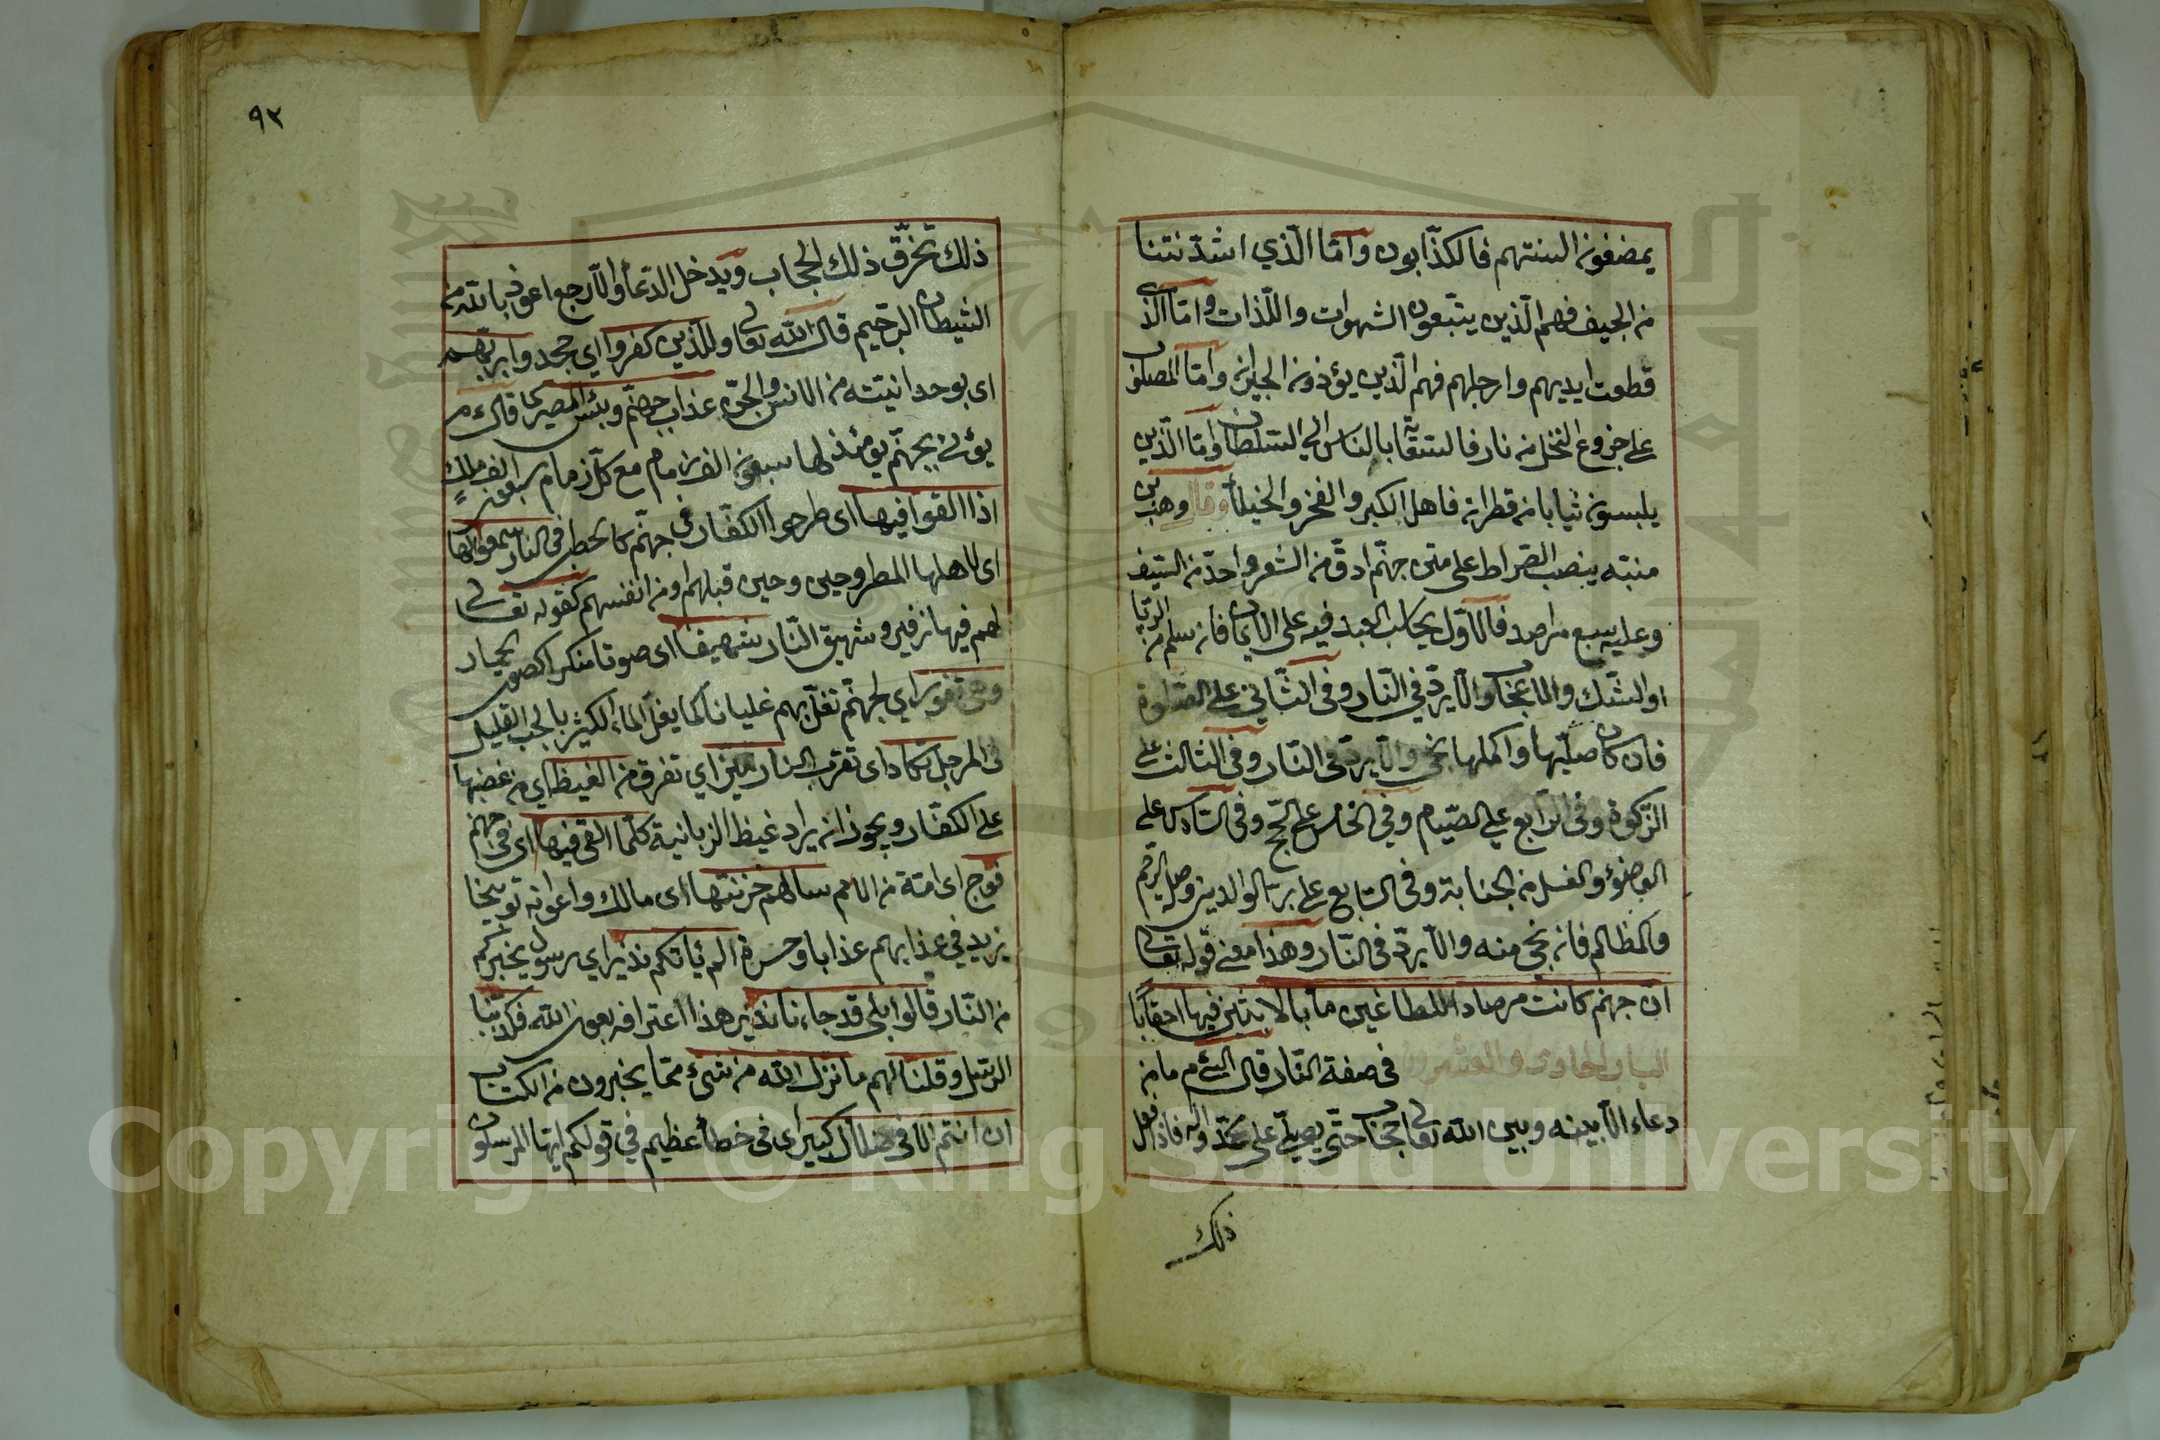 يمضغون السنتهم فالكذابون واما الذي اشد نتنا
من الجيف فهم الذين يتبعون الشهوات واللذات واما الذي
قطعت ايديهم وارجلهم فهم الذين يؤذون الجيران واما المصلوب
على جزوع النخل من نار فالستقا بالناس الى السلطان واما الذين
يلبسون ثيابا من قطران فاهل الكبر والفخر والخيلاء وقال وهب بن
منبه ينصب الصراط على متن جهنم ادق من الشعر واحد من السيف
وعليه سبع مراصد فالاول يحاسب العبد فيه على الايمان فان سلم من الريا
او الشك والا يرد في النار وفي الثاني على الصلوة
فان كان صليها واكملها نجى والا يرد في النار وفي الثالث على
الزكوة وفي الرابع على الصيام وفي الخامس على الحج وفي السادس على
الوضوء والغسل من الجنابة وفي السابع على بر الوالدين وصل الرحم
والمظالم فان نجى منه والا يرد في النار وهذا معنى قوله تعالى
ان جهنم كانت مرصادا للطاغين مأبا لابثين فيها احقابا
الباب الحادى والعشرون في صفة النار قال النبي م ما من
دعاء الا بينه وبين الله تعالى حجاب حتى يصلى على محمد واله فاذا فعل
ذلك
٩٢
ذلك تخرق ذلك الحجاب ويدخل الدعاء والا رجع اعوذ بالله من
الشيطان الرجيم قال الله تعالى وللذين كفروا اي جحدوا بربهم
اى بوحدانيته من الانس والجن عذاب جهنم وبئس المصير قال م
يؤتى بجهنم يومئذ لها سبعون الف زمام مع كل زمام سبعون الف ملك
اذا القوا فيها اى طرحوا الكفار في جهنم كالحطب في النار سمعوا لها
اى لاهلها المطروحين وحين قبلهم او من انفسهم كقوله تعالى
لهم فيها زفير وشهيق النار شهيقا اى صوتا منكرا كصوت الحمار
وهى تفور اي جهنم تغلى بهم غليانا كما يغلى الماء الكثير بالحب القليل
في المرجل تكاد اى تقرب النار تميز اي تفرق من الغيظ اي من غضبها
على الكفار ويجوز ان يراد غيظ الزبانية كلما القى فيها اى في جهنم
فوج اى امة من الامم سالهم خزنتها اى مالك واعوانه توبيخا
يزيد في عذابهم عذابا وحسرة الم يأتكم نذير اي رسول يخبركم
من النار قالوا بلى قد جاءنا نذير هذا اعتراف بعون الله فكذبنا
الرسل وقلنا لهم ما نزل الله من شىء مما يخبرون من الكتاب
ان انتم الا في ضلال كبير اى في خطأ عظيم في قولكم ايها المرسلون
Copyright © King Saud University